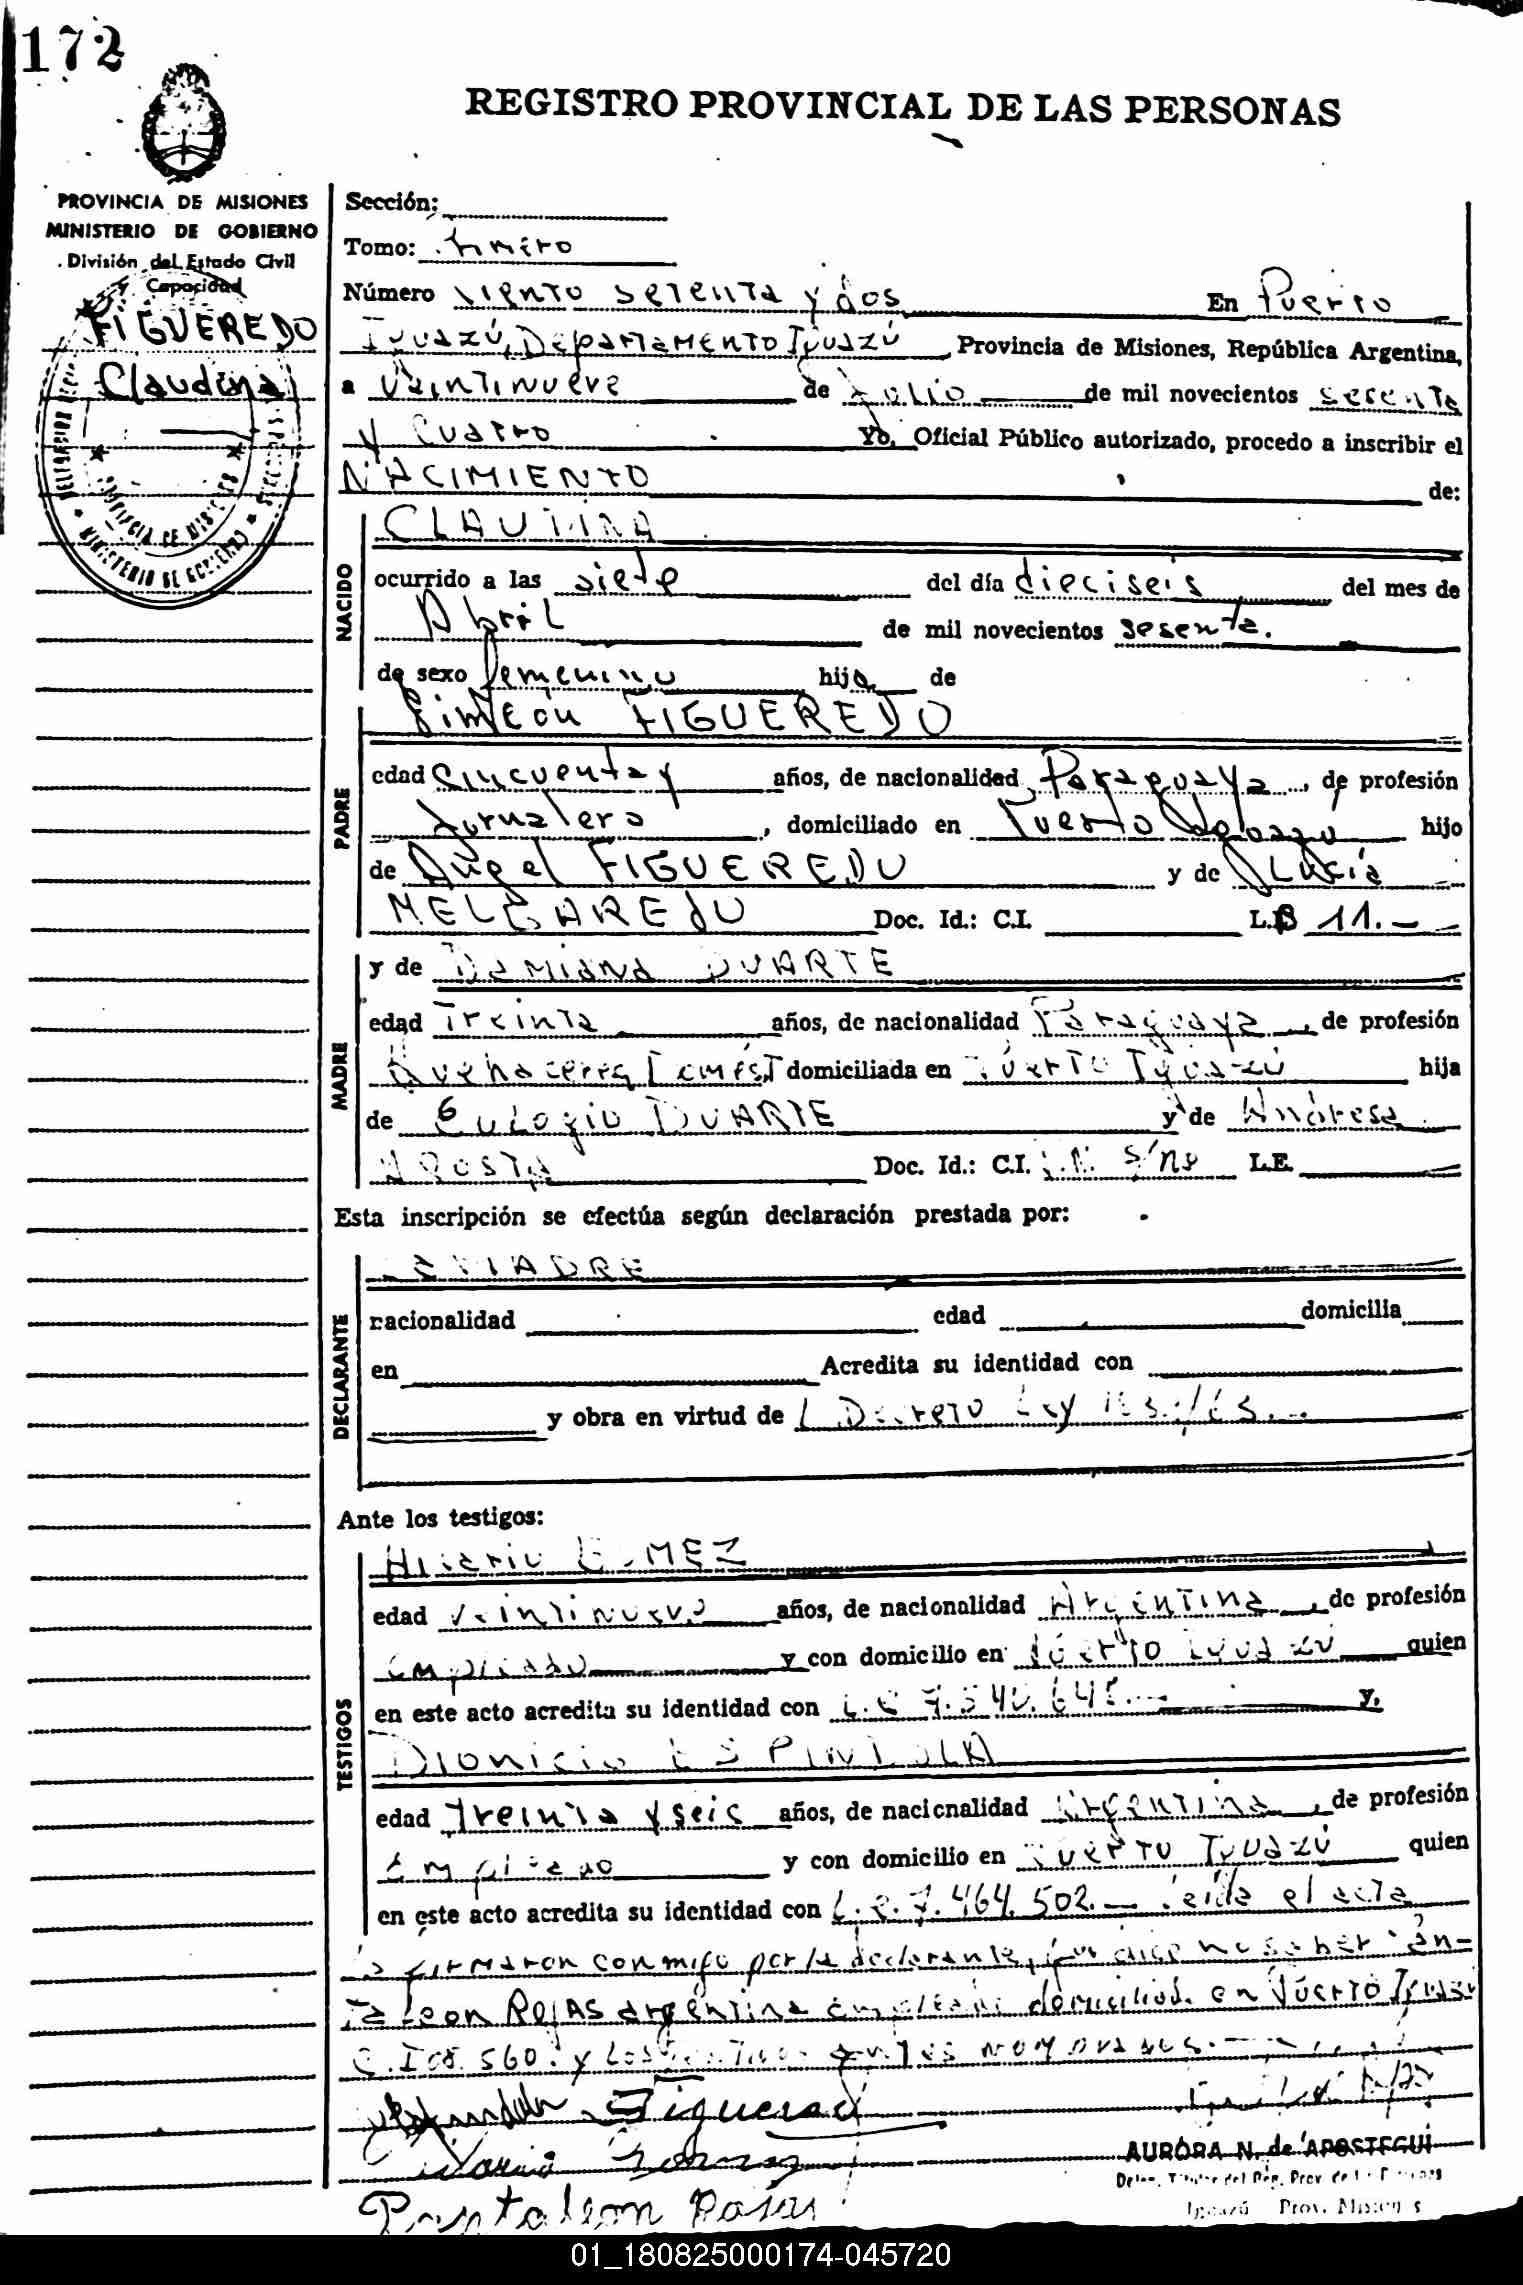 172
REGISTRO PROVINCIAL DE LAS PERSONAS
PROVINCIA DE MISIONES
MINISTERIO DE GOBIERNO
División del Estado Civil
y Capacidad
FIGUEREDO
Claudina
PROVINCIA DE MISIONES
MINISTERIO DE GOBIERNO
Sección:
Tomo: Primero
Número ciento setenta y dos En Puerto
Iguazú, Departamento Iguazú Provincia de Misiones, República Argentina,
a Veintinueve de Julio de mil novecientos sesenta
y cuatro Yo, Oficial Público autorizado, procedo a inscribir el
NACIMIENTO de:
NACIDO
CLAUDINA
ocurrido a las siete del día dieciseis del mes de
Abril de mil novecientos sesenta.
de sexo femenino hija de
PADRE
Simeón FIGUEREDO
edad cincuenta y años, de nacionalidad Paraguaya, de profesión
Jornalero, domiciliado en Puerto hijo
de Angel FIGUEREDO y de Lucía
MELGAREJO Doc. Id.: C.I. L.E. 11.-
MADRE
y de Damiana DUARTE
edad Treinta años, de nacionalidad Paraguaya, de profesión
Quehaceres Domést domiciliada en Puerto Iguazú hija
de Eulogio DUARTE y de Andresa
ACOSTA Doc. Id.: C.I. S/no L.E.
Esta inscripción se efectúa según declaración prestada por:
DECLARANTE
LA MADRE
nacionalidad edad domicilia
en Acredita su identidad con
y obra en virtud de Decreto Ley
Ante los testigos:
TESTIGOS
Hilario GOMEZ
edad veintinueve años, de nacionalidad Argentina, de profesión
empleado y con domicilio en Puerto Iguazú quien
en este acto acredita su identidad con L.E 7.540.64 y,
Dionicio ESPINDOLA
edad treinta y seis años, de nacionalidad Argentina, de profesión
Empleado y con domicilio en Puerto Iguazú quien
en este acto acredita su identidad con L.e. 7.464.502.- leída el acta
la firmaron conmigo por la declarante, que dice no saber
León ROJAS argentina empleado domiciliado en Puerto Iguazú
C.I 560. y los testigos antes nombrados.
Figueredo
Pantaleon Rojas
AURORA N. de APOSTEGUI
Deleg. Titular del Reg. Prov. de las Personas
Iguazú Prov. Misiones
01_180825000174-045720